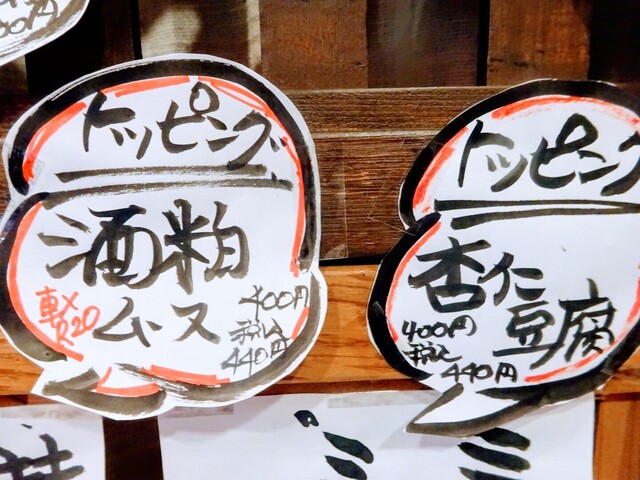 00円
トッピング
酒粕
ムース
車×
R20
400円
税込
440円
トッピング
杏仁
豆腐
400円
税込
440円